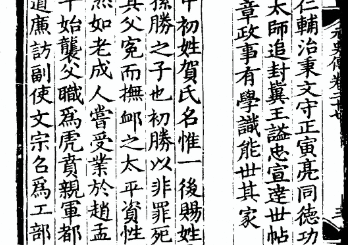 仁輔治秉文守正寅亮同德功
太師追封冀王謚忠宣達世帖
章政事有學識能世其家
中初姓賀氏名惟一後賜姓
孫勝之子也初勝以非罪死
其父寃而撫卹之太平資性
然如老成人嘗受業於趙孟
十始襲父職為虎賁親軍都
道廉訪副使文宗召為工部